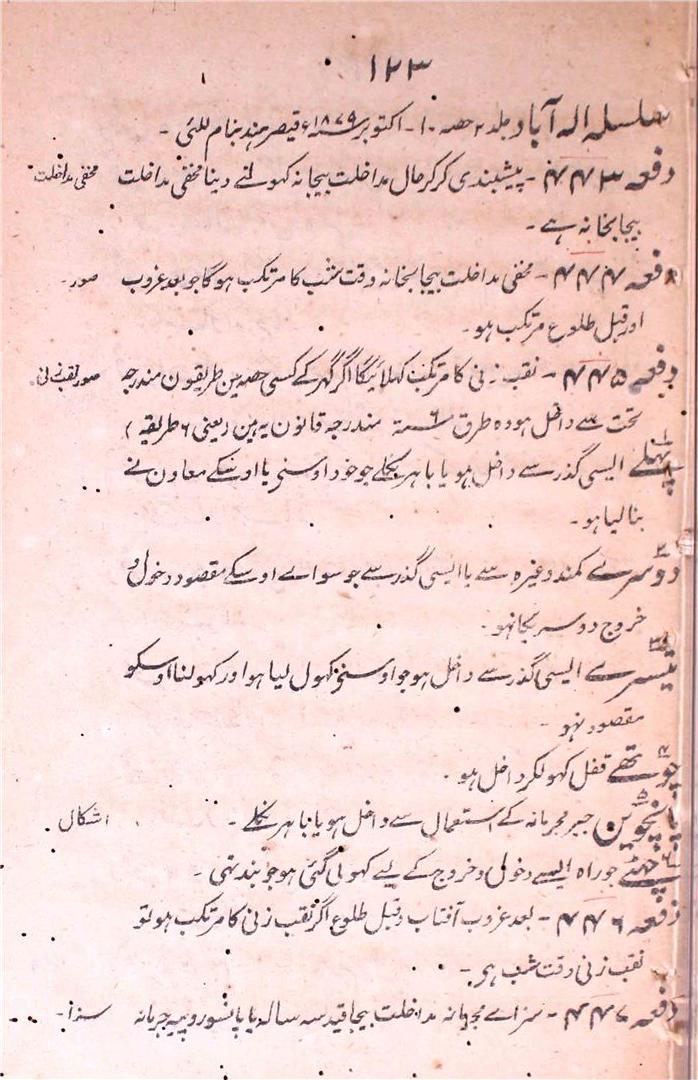 ۱۲۳
سلسلہ الہ آباد جلد ۲ حصہ ۱۰ - اکتوبر ۱۸۷۹ء قیصر ہند بنام للئی -
دفعہ ۴۴۳ - پیشبندی کرکر حال مداخلت بیجا نہ کہولنے دینا مخفی مداخلت مخفی مداخلت
بیجا بخانہ ہے -
دفعہ ۴۴۴ - مخفی مداخلت بیجا بخانہ وقت شب کا مرتکب ہوگا جو بعد غروب صور -
اور قبل طلوع مرتکب ہو -
دفعہ ۴۴۵ - نقب زنی کا مرتکب کہلائیگا اگر گہر کے کسی حصہ مین طریقون مندرجہ صور نقب زنی
تحت سے داخل ہو وہ طرق ستہ ۶ مندرجہ قانون یہ ہین (یعنی ۶ طریقہ)
پہلے ۱ ایسی گذر سے داخل ہو یا باہر نکلے جو خود اوسنی یا اوسکے معاون نے
بنا لیا ہو -
دوسرے ۲ کمند وغیرہ سے یا ایسی گذر سے جو سواے اوسکے مقصود دخول و
خروج دوسریکا نہو -
تیسرے ۳ ایسی گذر سے داخل ہو جو اوسنی کہول لیا ہو اور کہولنا اوسکو
مقصود نہو -
چوتھے ۴ قفل کہولکر داخل ہو -
پانچوین ۵ جبر مجرمانہ کے استعمال سے داخل ہو یا باہر نکلے - اشکال
چہٹے ۶ جو راہ ایسے دخول و خروج کے لیے کہولی گئی ہو جو بند تہی -
دفعہ ۴۴۶ - بعد غروب آفتاب و قبل طلوع اگر نقب زنی کا مرتکب ہو تو
نقب زنی وقت شب ہی -
دفعہ ۴۴۷ - سزاے مجرمانہ مداخلت بیجا قید سہ سالہ یا پانسو روپیہ جرمانہ سزا -